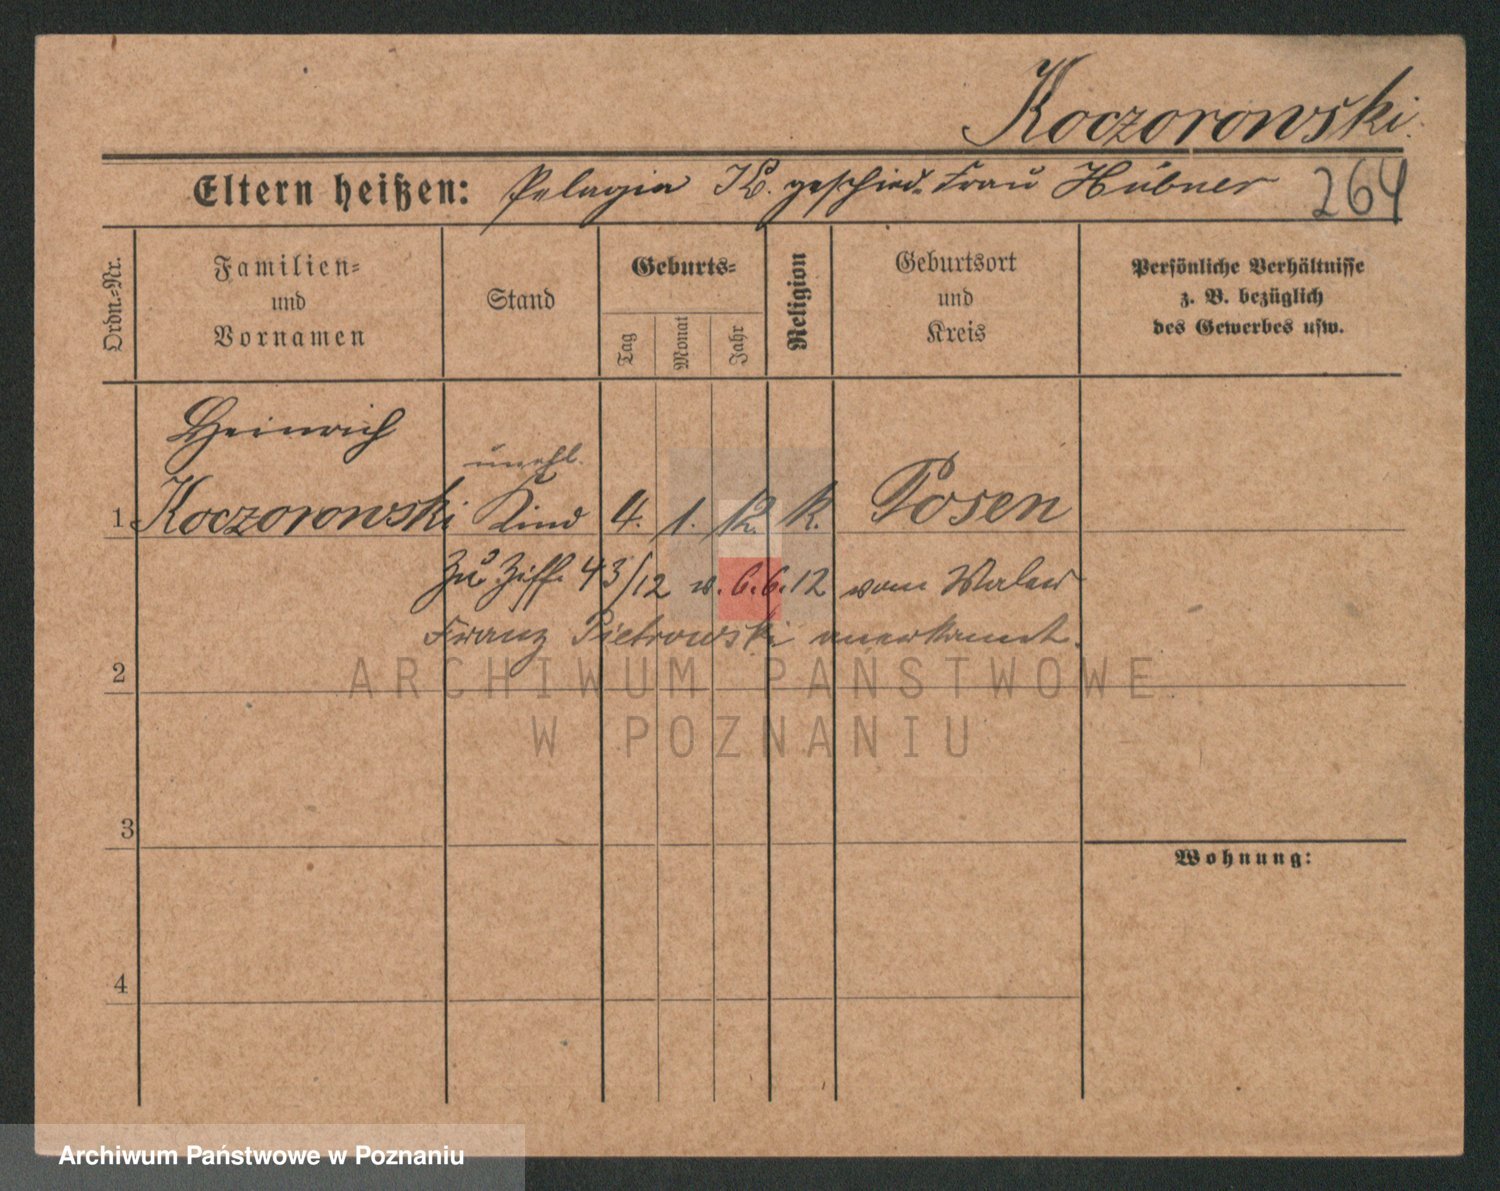 Koczorowski.
Eltern heißen: Pelagia K. geschied. Frau Hübner 264
Ordn.-Nr.
Familien- und Vornamen
Stand
Geburts-
Tag
Monat
Jahr
Religion
Geburtsort und Kreis
Persönliche Verhältnisse z. B. bezüglich des Gewerbes usw.
Heinrich
unehl.
1 Koczorowski Kind 4. 1. 12. k. Posen
Zu Ziff. 43/12 v. 6.6.12 vom Maler
Franz Pietrowski anerkannt.
2
ARCHIWUM PAŃSTWOWE
W POZNANIU
3
Wohnung:
4
Archiwum Państwowe w Poznaniu